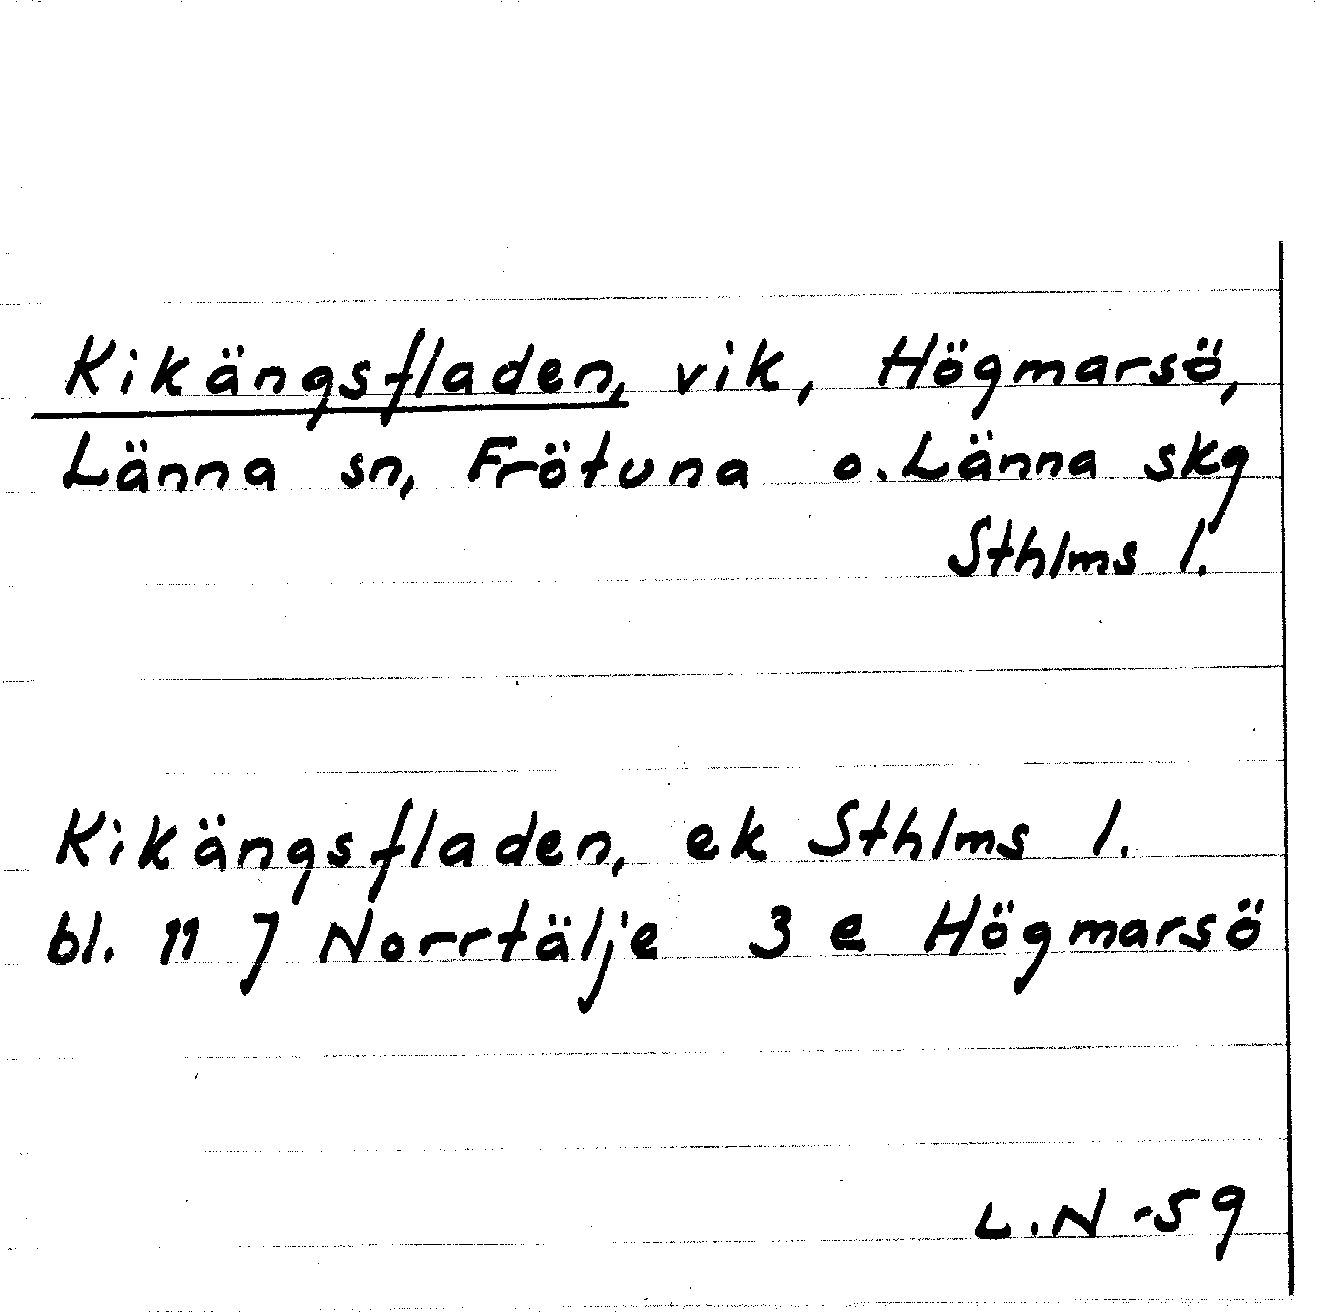 Kikängsfladen, vik, Högmarsö,
Länna sn, Frötuna o. Länna skg
Sthlms l.
Kikängsfladen, ek Sthlms l.
bl. 11 J Norrtälje 3 e Högmarsö
L.N -59